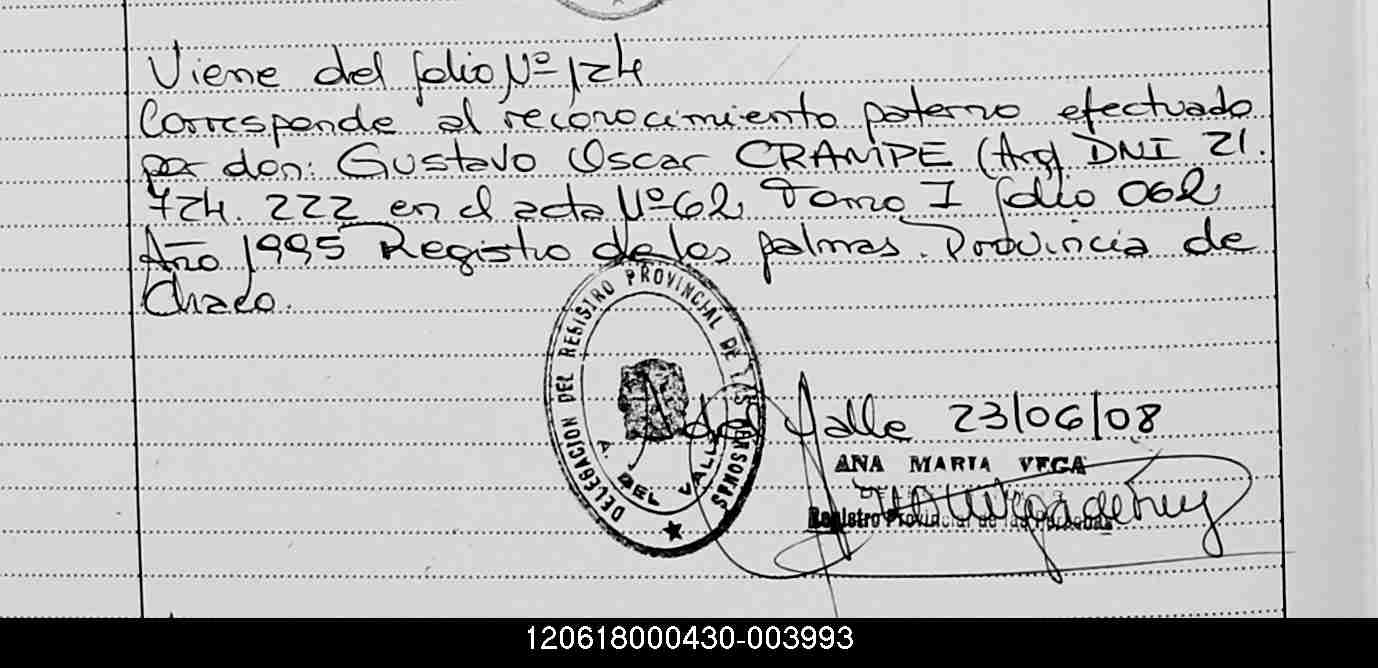 Viene del folio Nº 124
Corresponde al reconocimiento paterno efectuado
por don: Gustavo Oscar CRAMPE (Arg) DNI 21.
724.222 en el acta Nº 62 Tomo I folio 062
Año 1995 Registro de las palmas. Provincia de
Chaco.
DELEGACION DEL REGISTRO PROVINCIAL DE LAS PERSONAS
A. DEL VALLE
A. del Valle 23/06/08
ANA MARIA VEGA
Registro Provincial de las Personas
120618000430-003993